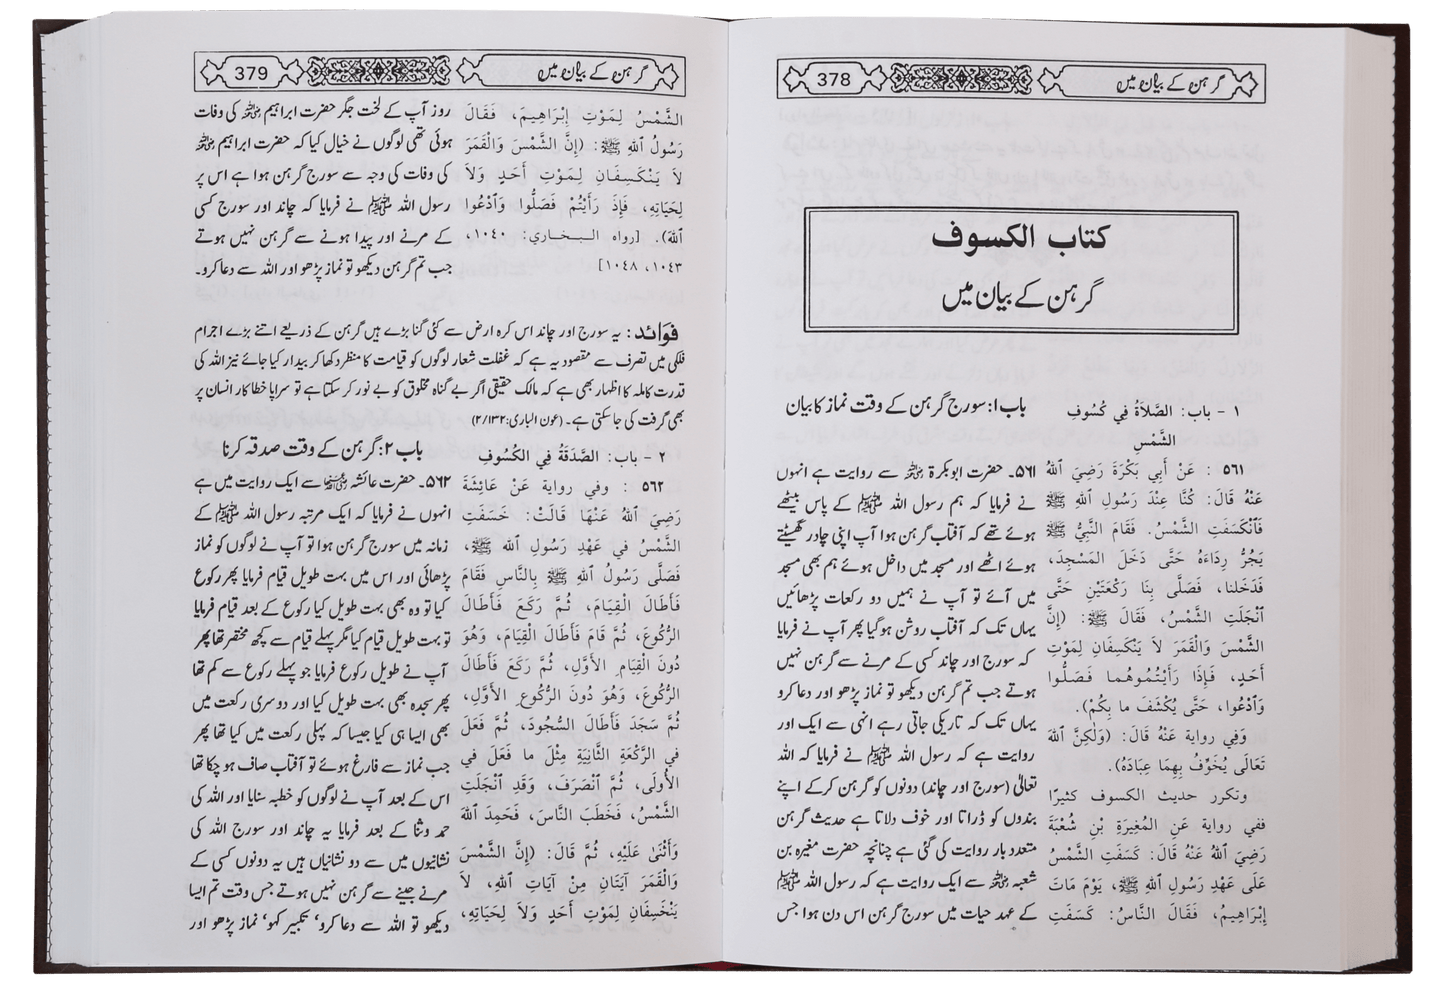 گرہن کے بیان میں
378
كتاب الكسوف
گرہن کے بیان میں
١ - باب: الصَّلاَةُ فِي كُسُوفِ
الشَّمْسِ
٥٦١ : عَنْ أَبِي بَكْرَةَ رَضِيَ ٱللهُ
عَنْهُ قَالَ: كُنَّا عِنْدَ رَسُولِ ٱللهِ ﷺ
فَٱنْكَسَفَتِ الشَّمْسُ. فَقَامَ النَّبِيُّ ﷺ
يَجُرُّ رِدَاءَهُ حَتَّى دَخَلَ المَسْجِدَ،
فَدَخَلنَا، فَصَلَّى بِنَا رَكْعَتَيْنِ حَتَّى
ٱنْجَلَتِ الشَّمْسُ، فَقَالَ ﷺ: (إِنَّ
الشَّمْسَ وَالْقَمَرَ لاَ يَنْكَسِفَانِ لِمَوْتِ
أَحَدٍ، فَإِذَا رَأَيْتُمُوهُما فَصَلُّوا
وَٱدْعُوا، حَتَّى يُكْشَفَ ما بِكُمْ).
وَفِي رواية عَنْهُ قَالَ: (وَلٰكِنَّ ٱللهَ
تَعَالَى يُخَوِّفُ بِهِمَا عِبَادَهُ).
وتكرر حديث الكسوف كثيرًا
ففي رواية عَنِ المُغِيرَةِ بْنِ شُعْبَةَ
رَضِيَ ٱللهُ عَنْهُ قَالَ: كَسَفَتِ الشَّمْسُ
عَلَى عَهْدِ رَسُولِ ٱللهِ ﷺ، يَوْمَ مَاتَ
إِبْرَاهِيمُ، فَقَالَ النَّاسُ: كَسَفَتِ
باب ۱: سورج گرہن کے وقت نماز کا بیان
۵۶۱۔ حضرت ابوبکرۃ رضی اللہ عنہ سے روایت ہے انہوں
نے فرمایا کہ ہم رسول اللہ ﷺ کے پاس بیٹھے
ہوئے تھے کہ آفتاب گرہن ہوا آپ اپنی چادر گھسیٹتے
ہوئے اٹھے اور مسجد میں داخل ہوئے ہم بھی مسجد
میں آئے تو آپ نے ہمیں دو رکعات پڑھائیں
یہاں تک کہ آفتاب روشن ہوگیا پھر آپ نے فرمایا
کہ سورج اور چاند کسی کے مرنے سے گرہن نہیں
ہوتے جب تم گرہن دیکھو تو نماز پڑھو اور دعا کرو
یہاں تک کہ تاریکی جاتی رہے انہی سے ایک اور
روایت ہے کہ رسول اللہ ﷺ نے فرمایا کہ اللہ
تعالیٰ (سورج اور چاند) دونوں کو گرہن کرکے اپنے
بندوں کو ڈراتا اور خوف دلاتا ہے حدیث گرہن
متعدد بار روایت کی گئی ہے چنانچہ حضرت مغیرہ بن
شعبہ رضی اللہ عنہ سے ایک روایت ہے کہ رسول اللہ ﷺ
کے عہد حیات میں سورج گرہن اس دن ہوا جس
گرہن کے بیان میں
379
الشَّمْسُ لِمَوْتِ إِبْرَاهِيمَ، فَقَالَ
رَسُولُ ٱللهِ ﷺ: (إِنَّ الشَّمْسَ وَالْقَمَرَ
لاَ يَنْكَسِفَانِ لِمَوْتِ أَحَدٍ وَلاَ
لِحَيَاتِهِ، فَإِذَ رَأَيْتُمْ فَصَلُّوا وَٱدْعُوا
ٱللهَ). [رواه البخاري: ١٠٤٠،
١٠٤٣، ١٠٤٨]
روز آپ کے لخت جگر حضرت ابراہیم رضی اللہ عنہ کی وفات
ہوئی تھی لوگوں نے خیال کیا کہ حضرت ابراہیم رضی اللہ عنہ
کی وفات کی وجہ سے سورج گرہن ہوا ہے اس پر
رسول اللہ ﷺ نے فرمایا کہ چاند اور سورج کسی
کے مرنے اور پیدا ہونے سے گرہن نہیں ہوتے
جب تم گرہن دیکھو تو نماز پڑھو اور اللہ سے دعا کرو۔
فوَائد: یہ سورج اور چاند اس کرہ ارض سے کئی گنا بڑے ہیں گرہن کے ذریعے اتنے بڑے اجرام
فلکی میں تصرف سے مقصود یہ ہے کہ غفلت شعار لوگوں کو قیامت کا منظر دکھا کر بیدار کیا جائے نیز اللہ کی
قدرت کاملہ کا اظہار بھی ہے کہ مالک حقیقی اگر بے گناہ مخلوق کو بے نور کر سکتا ہے تو سراپا خطا کار انسان پر
بھی گرفت کی جا سکتی ہے۔ (عون الباری:۲/۱۳۲)
٢ - باب: الصَّدَقَةُ فِي الكُسُوفِ
٥٦٢ : وفي رواية عَنْ عَائِشَةَ
رَضِيَ ٱللهُ عَنْهَا قَالَتْ: خَسَفَتِ
الشَّمْسُ في عَهْدِ رَسُولِ اللهِ ﷺ،
فَصَلَّى رَسُولُ ٱللهِ ﷺ بِالنَّاسِ فَقَامَ
فَأَطَالَ الْقِيَامَ، ثُمَّ رَكَعَ فَأَطَالَ
الرُّكُوعَ، ثُمَّ قَامَ فَأَطَالَ الْقِيَامَ، وَهُوَ
دُونَ الْقِيَامِ الأَوَّلِ، ثُمَّ رَكَعَ فَأَطَالَ
الرُّكُوعَ، وَهُوَ دُونَ الرُّكُوعِ الأَوَّلِ،
ثُمَّ سَجَدَ فَأَطَالَ السُّجُودَ، ثُمَّ فَعَلَ
في الرَّكْعَةِ الثَّانِيَةِ مِثْلَ ما فَعَلَ في
الأُولَى، ثُمَّ ٱنْصَرَفَ، وَقَدِ ٱنْجَلَتِ
الشَّمْسُ، فَخَطَبَ النَّاسَ، فَحَمِدَ ٱللهَ
وَأَثْنَى عَلَيْهِ، ثُمَّ قَالَ: (إِنَّ الشَّمْسَ
وَالْقَمَرَ آيَتَانِ مِنْ آيَاتِ ٱللهِ، لاَ
يَنْخَسِفَانِ لِمَوْتِ أَحَدٍ وَلاَ لِحَيَاتِهِ،
باب ۲: گرہن کے وقت صدقہ کرنا
۵۶۲۔ حضرت عائشہ رضی اللہ عنہا سے ایک روایت میں ہے
انہوں نے فرمایا کہ ایک مرتبہ رسول اللہ ﷺ کے
زمانہ میں سورج گرہن ہوا تو آپ نے لوگوں کو نماز
پڑھائی اور اس میں بہت طویل قیام فرمایا پھر رکوع
کیا تو وہ بھی بہت طویل کیا رکوع کے بعد قیام فرمایا
تو بہت طویل قیام کیا مگر پہلے قیام سے کچھ مختصر تھا پھر
آپ نے طویل رکوع فرمایا جو پہلے رکوع سے کم تھا
پھر سجدہ بھی بہت طویل کیا اور دوسری رکعت میں
بھی ایسا ہی کیا جیسا کہ پہلی رکعت میں کیا تھا پھر
جب نماز سے فارغ ہوئے تو آفتاب صاف ہو چکا تھا
اس کے بعد آپ نے لوگوں کو خطبہ سنایا اور اللہ کی
حمد وثنا کے بعد فرمایا یہ چاند اور سورج اللہ کی
نشانیوں میں سے دو نشانیاں ہیں یہ دونوں کسی کے
مرنے جینے سے گرہن نہیں ہوتے جس وقت تم ایسا
دیکھو تو اللہ سے دعا کرو' تکبیر کہو' نماز پڑھو اور